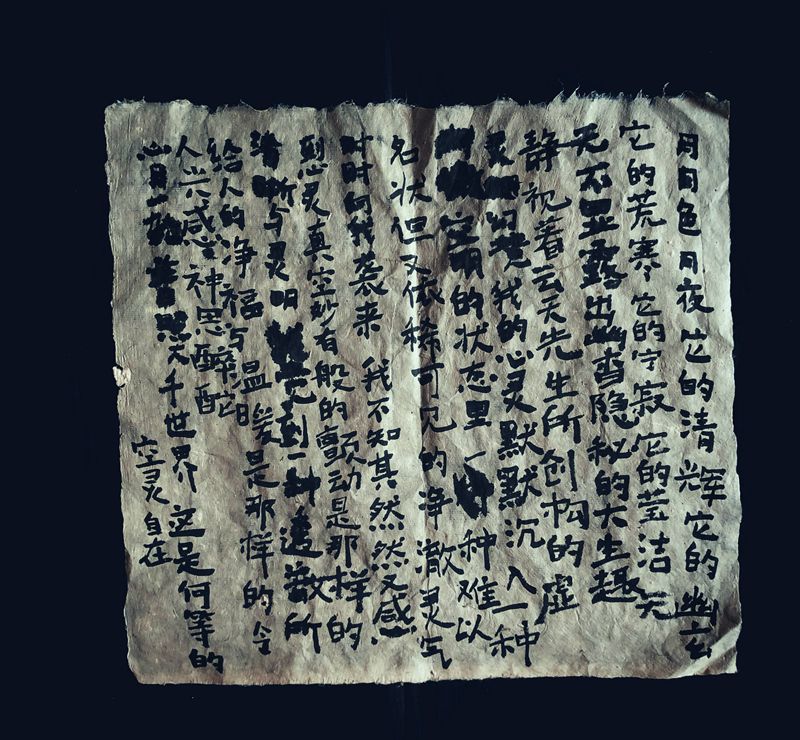 月月色月夜它的清辉它的幽玄
它的荒寒它的宁寂它的莹洁无
无不显露出幽杳隐秘的大生趣
静视着云天先生所创构的虚
灵 我的心灵默默沉入一种
空明的状态里一种难以
名状但又依稀可见的净澈灵气
时时向我袭来 我不知其然然又感
到心灵真空妙有般的颤动是那样的
清晰与灵明 到一种透彻所
给人的净福与温暖是那样的令
人兴感神思醉酡
心月 普照大千世界 这是何等的
空灵自在